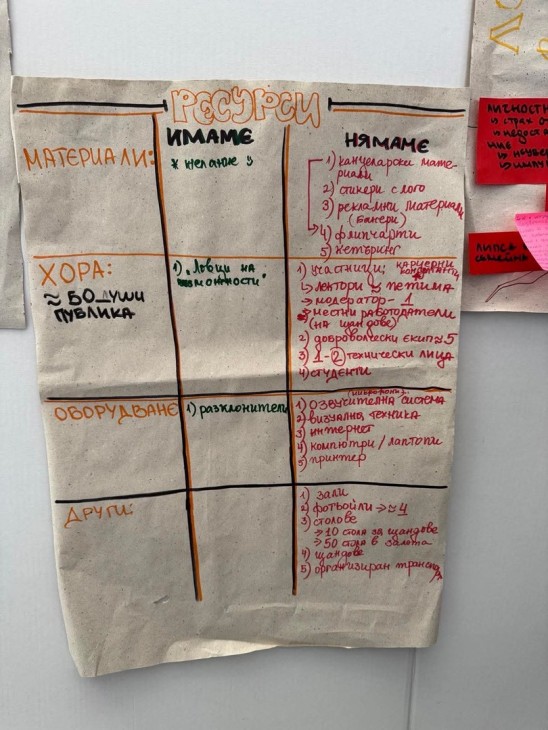 РЕСУРСИ
ИМАМЕ
НЯМАМЕ
МАТЕРИАЛИ:
* желание :)
1) канцеларски мате-
риали
2) стикери с лого
3) рекламни материали
(банери)
4) флипчарти
5) кетъринг
ХОРА:
≈ 50 души
ПУБЛИКА
1) "Ловци на
възможности"
1) участници: кариерни
консултанти
↳ лектори петима
→ модератор - 1
местни работодатели
(на щандове)
2) доброволчески екип 5
3) 1-2 технически лица
4) студенти
ОБОРУДВАНЕ
1) разклонители
микрофони
1) озвучителна система
2) визуална техника
3) интернет
4) компютри / лаптопи
5) принтер
ДРУГИ:
1) зали
2) фотьойли → ≈ 4
3) столове
⇒ 10 стола за щандове
⇒ 50 стола в залата
4) щандове
5) организиран транспорт
ЛИЧНОСТН
страх о
недоста
ЛИПСА
семейна